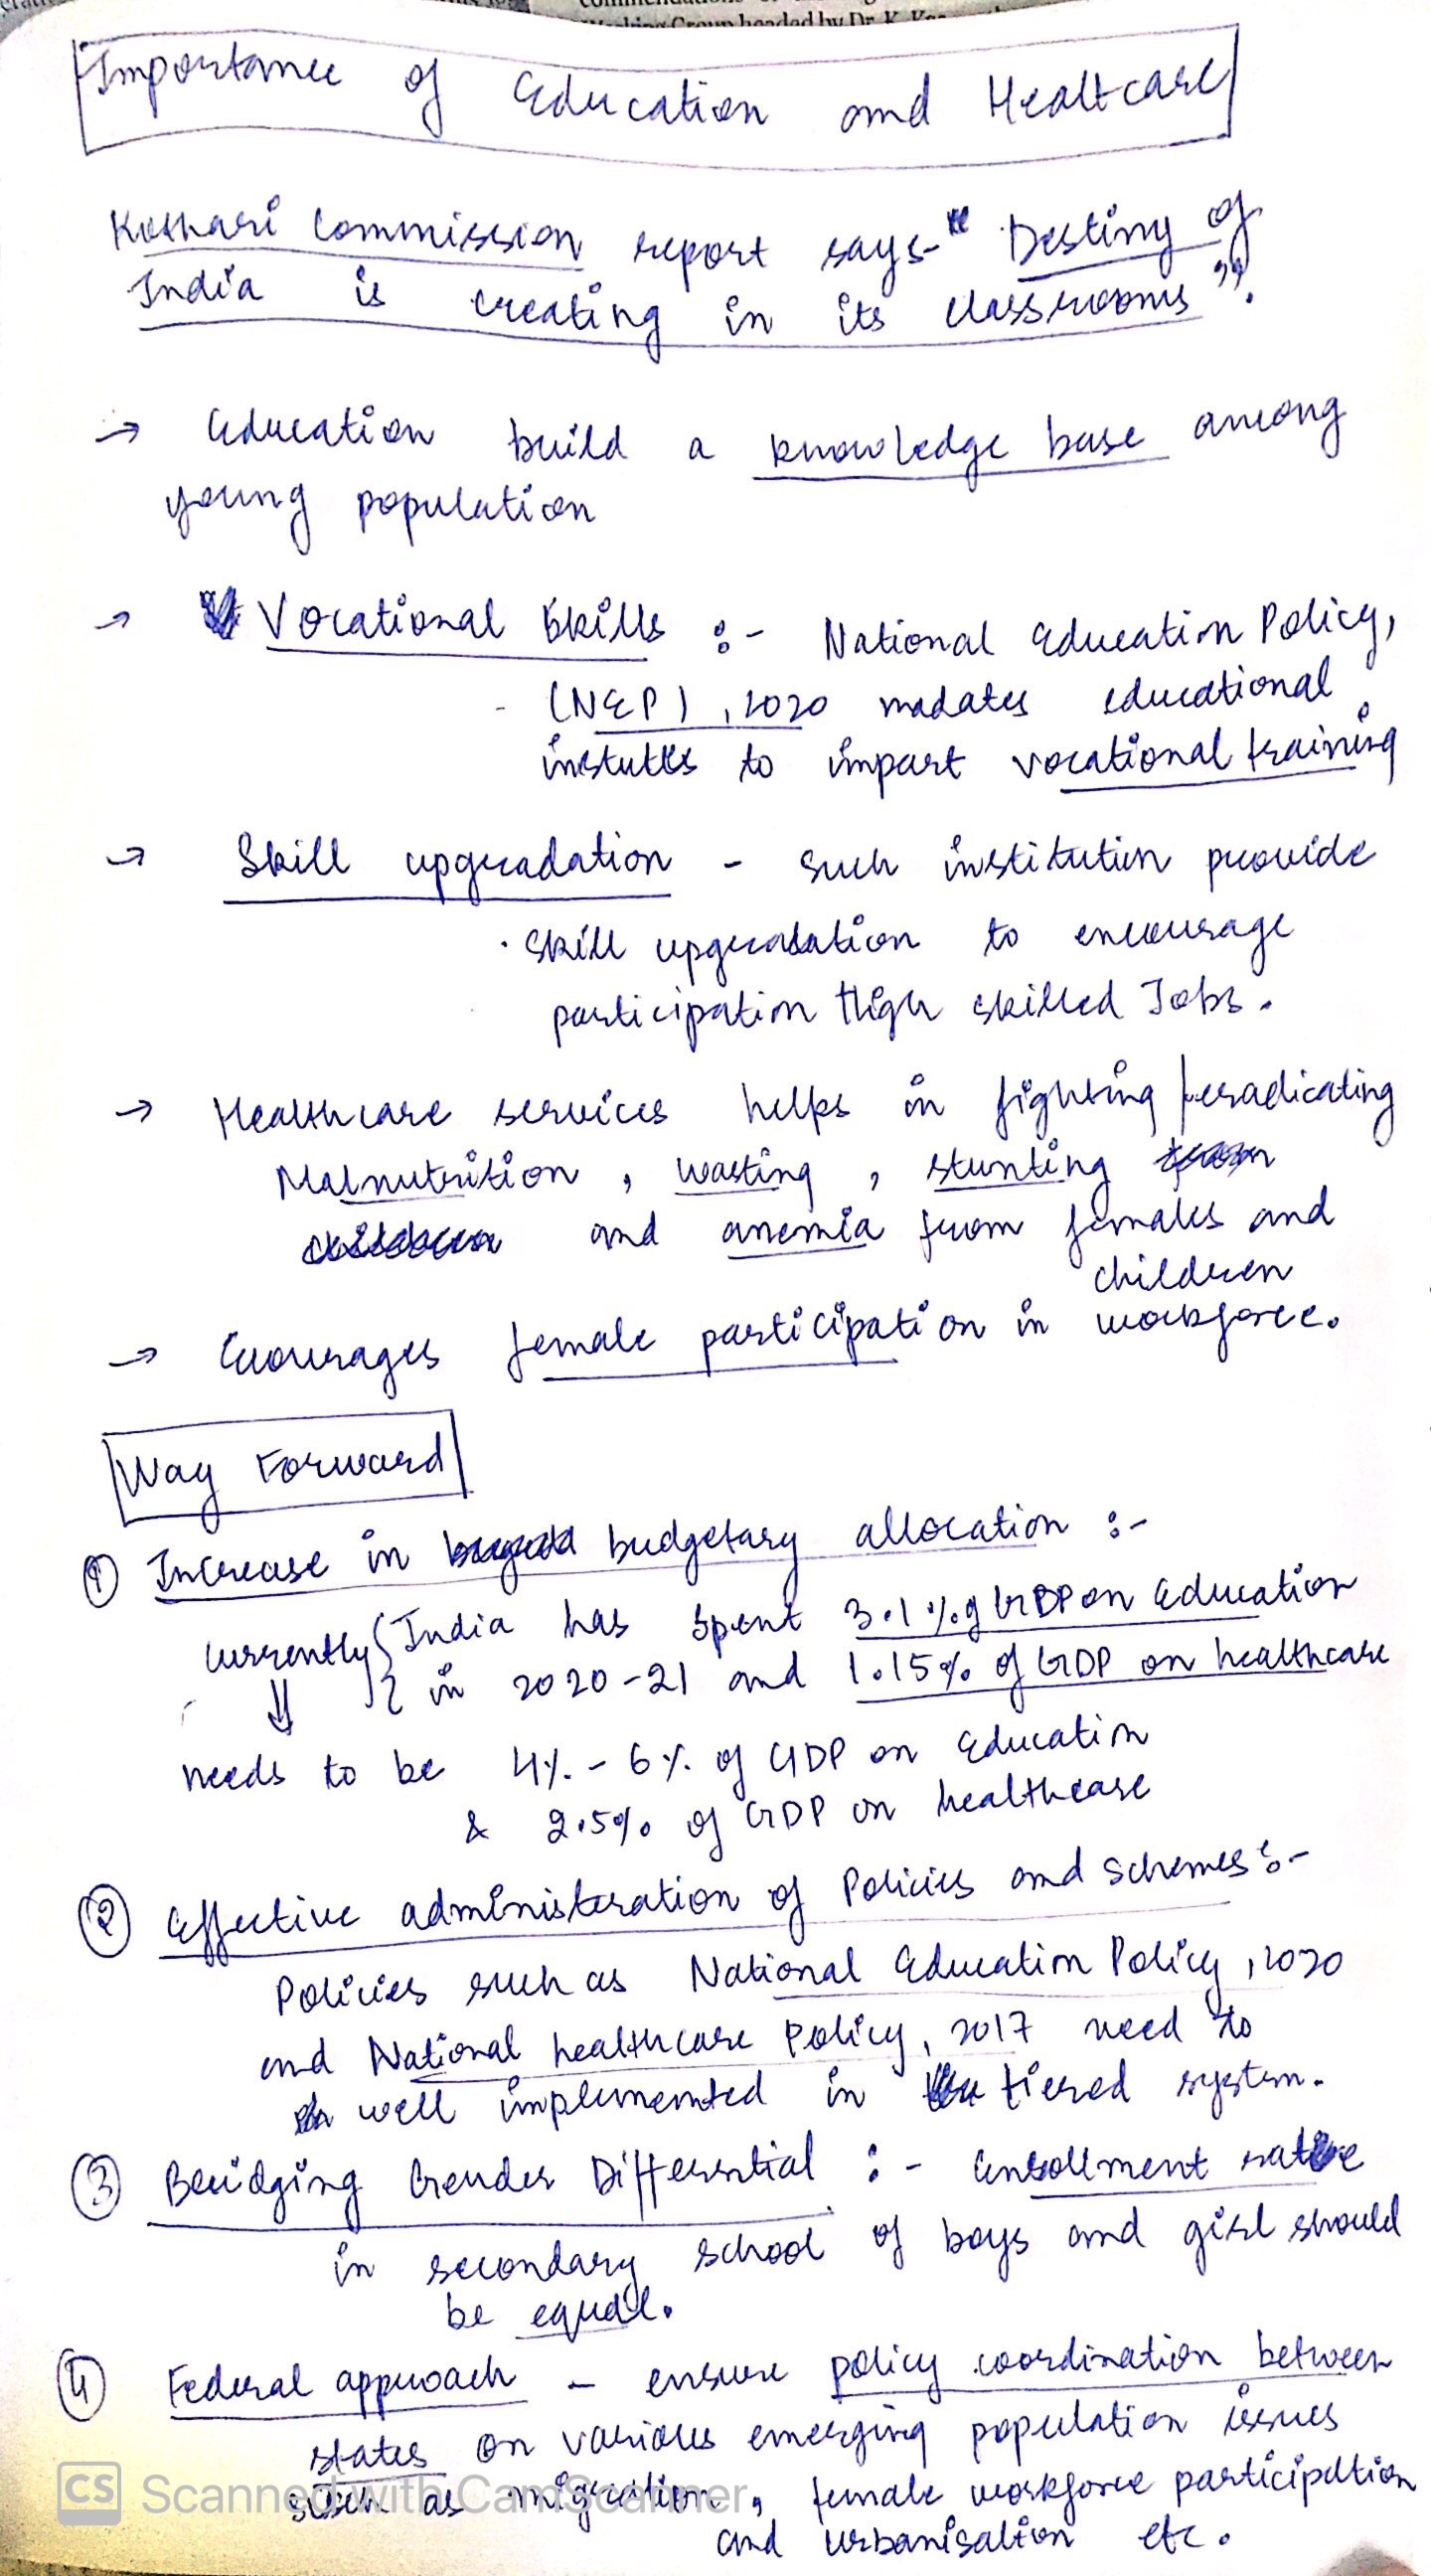 Working Group headed by Dr. K.
Importance of Education and Healtcare
Kothari Commission report says- "Destiny of
India is creating in its classrooms".
→ Education build a knowledge base among
young population
→ Vocational Skills :- National Education Policy,
(NEP), 2020 madates educational
instuttes to impart vocational training
→ Skill upgradation - such institution provide
skill upgradation to encourage
participation High skilled Jobs.
→ Healthcare services helps in fighting / eradicating
Malnutrition, wasting, stunting
and anemia from females and
children
→ Encourages female participation in workforce.
Way Forward
① Increase in budgetary allocation :-
currently { India has spent 3.1% of GDP on Education
⇓ in 2020-21 and 1.15% of GDP on healthcare
needs to be 4% - 6% of GDP on Education
& 2.5% of GDP on healthcare
② Effective administeration of Policies and schemes :-
Policies such as National Education Policy, 2020
and National healthcare Policy, 2017 need to
well implememted in tiered system.
③ Bridging Gender Differential :- Enrollment rate
in secondary school of boys and girl should
be equal.
④ Federal approach - ensure policy coordination between
states on various emerging population issues
such as migration, female workforce participation
and urbanisation etc.
CS Scanned with CamScanner